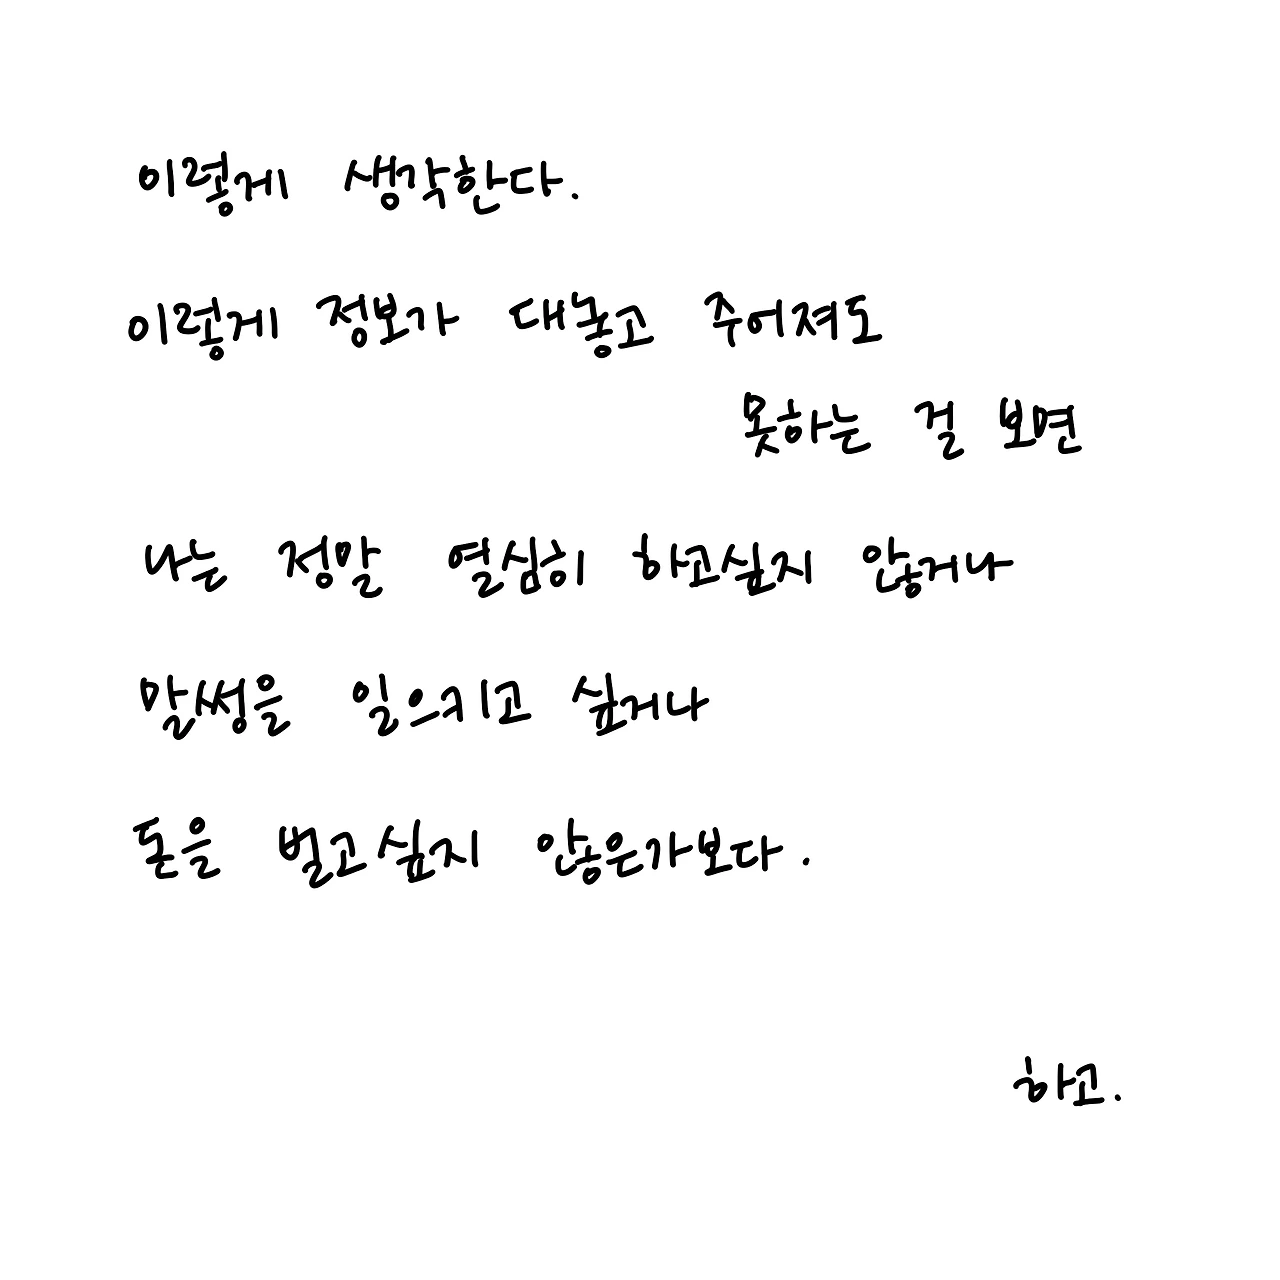 이렇게 생각한다.
이렇게 정보가 대놓고 주어져도
못하는 걸 보면
나는 정말 열심히 하고싶지 않거나
말썽을 일으키고 싶거나
돈을 벌고싶지 않은가보다.
하고.